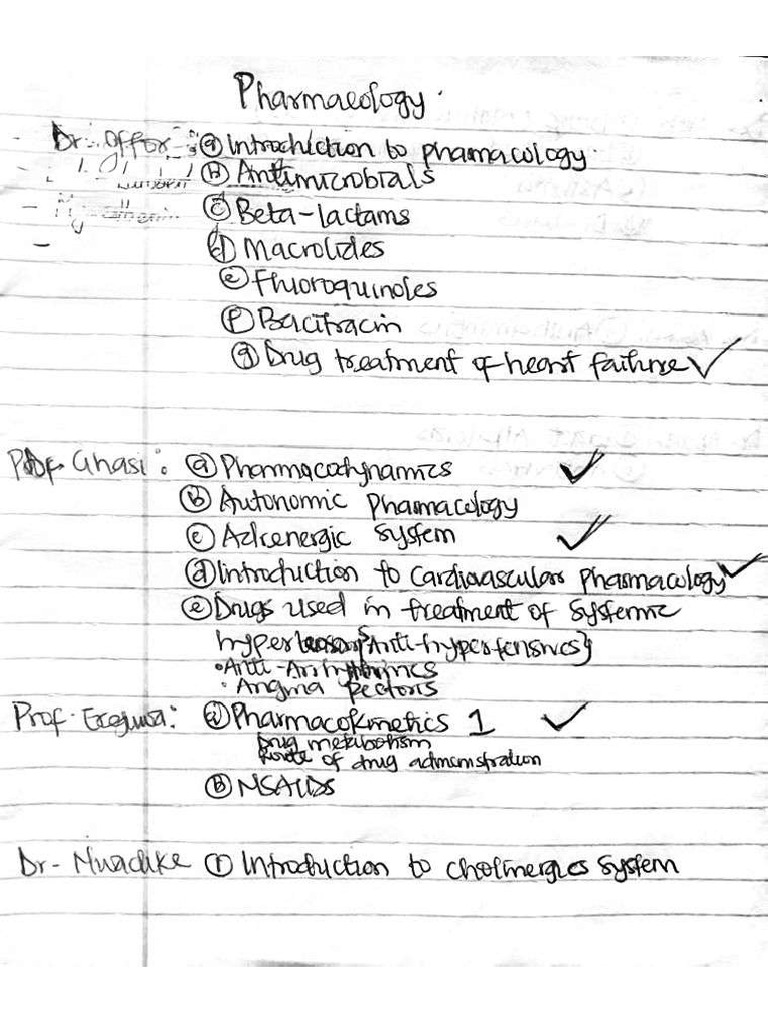 Pharmacology.
Dr. Offor :- (a) Introduction to pharmacology.
(b) Antimicrobials
(c) Beta-lactams
(d) Macrolides
(e) Fluoroquinoles
(f) Bacitracin
(g) Drug treatment of heart failure ✓
Prof. Ghasi : (a) Pharmacodynamics ✓
(b) Autonomic pharmacology
(c) Adrenergic system ✓
(d) Introduction to cardiovascular pharmacology ✓
(e) Drugs used in treatment of systemic
hypertension {Anti-hypertensives}
• Anti-Arrhythmics
• Angina pectoris
Prof. : (a) Pharmacokinetics 1 ✓
Drug metabolism
Route of drug administration
(b) NSAIDs
Dr- Nwadike (1) Introduction to cholinergics system